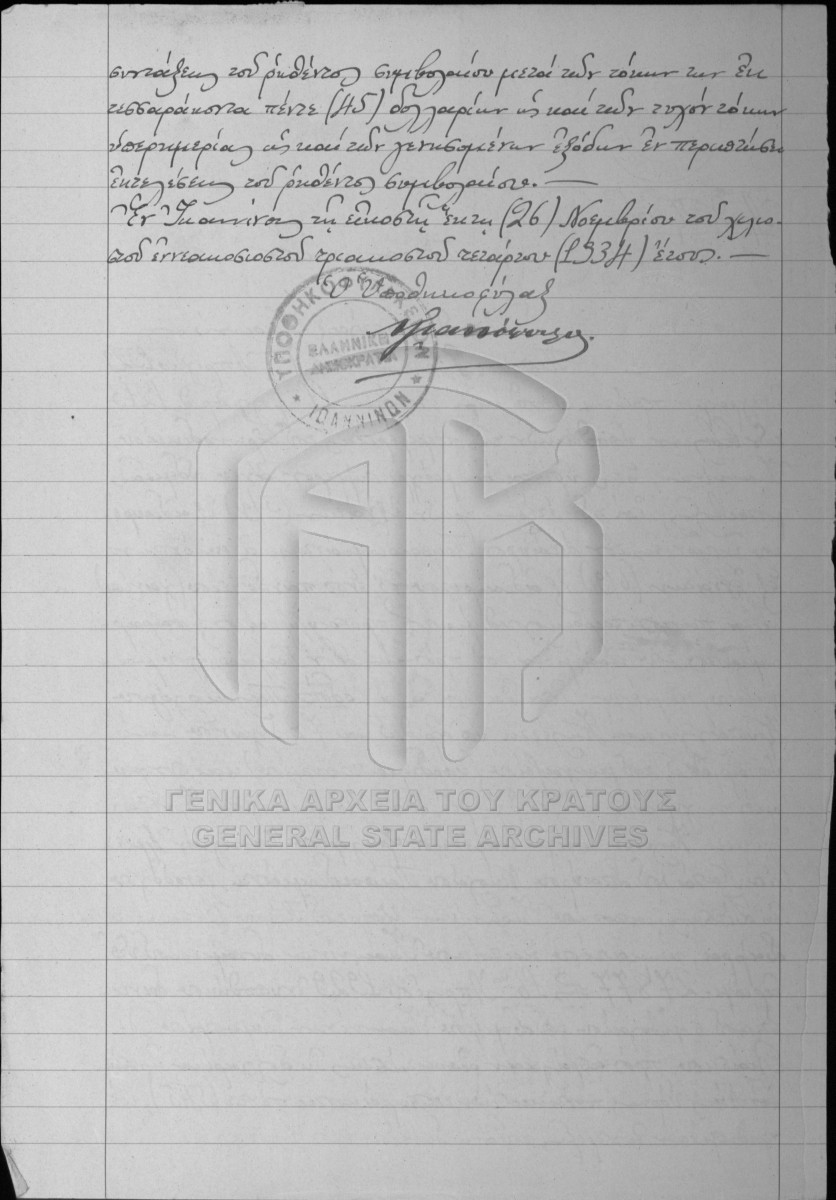 συντάξεως του ρηθέντος συμβολαίου μετά των τόκων των εκ
τεσσαράκοντα πέντε (45) δολλαρίων ως και των τυχόν τόκων
υπερημερίας ως και των γενησομένων εξόδων εν περιπτώσει
εκτελέσεως του ρηθέντος συμβολαίου. —
Εν Ιωαννίνοις τη εικοστή έκτη (26) Νοεμβρίου του χιλιο-
στού εννεακοσιοστού τριακοστού τετάρτου (1934) έτους. —
Ο Υποθηκοφύλαξ
ΥΠΟΘΗΚΟΦΥΛΑΚΕΙΟΝ
ΕΛΛΗΝΙΚΗ
ΔΗΜΟΚΡΑΤΙΑ
* ΙΩΑΝΝΙΝΩΝ *
ΓΕΝΙΚΑ ΑΡΧΕΙΑ ΤΟΥ ΚΡΑΤΟΥΣ
GENERAL STATE ARCHIVES